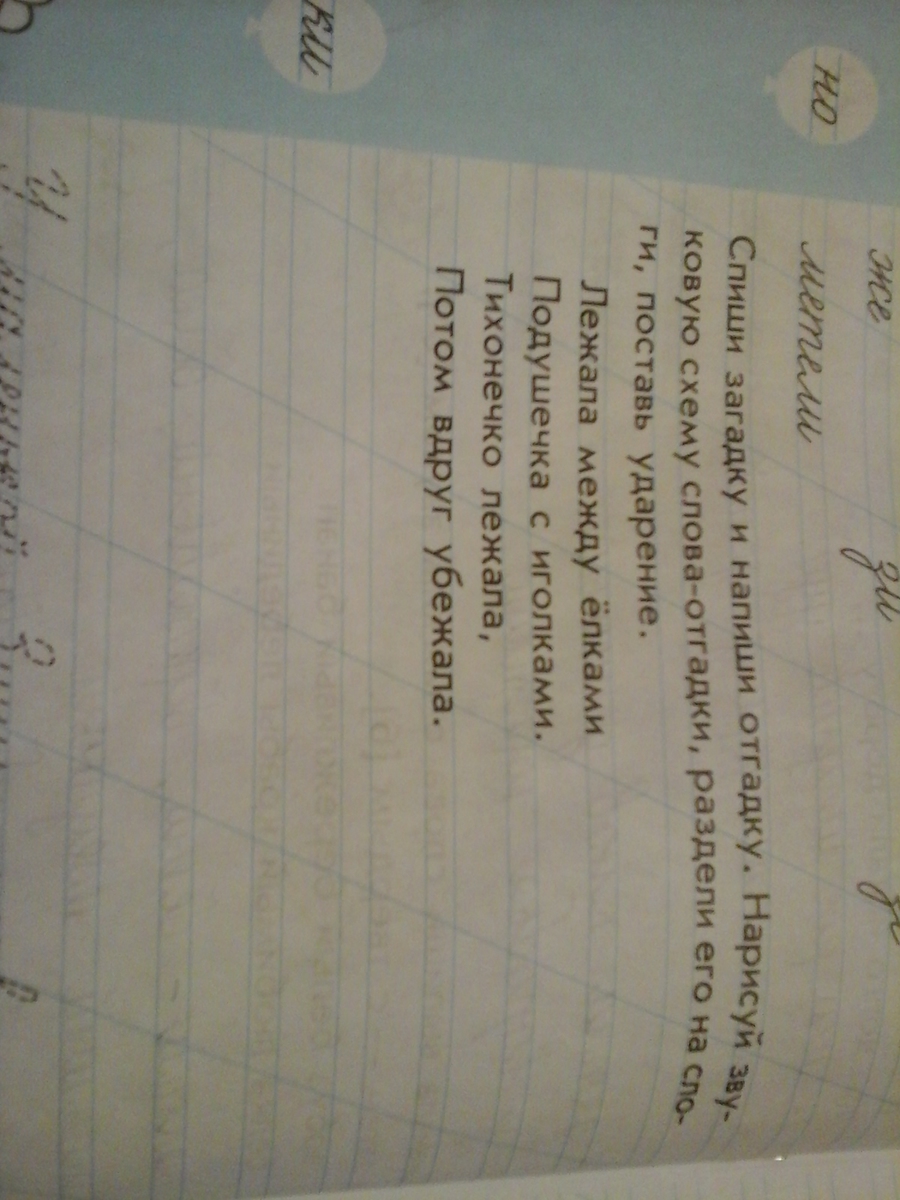 же зи
метели
но
Спиши загадку и напиши отгадку. Нарисуй зву-
ковую схему слова-отгадки, раздели его на сло-
ги, поставь ударение.
Лежала между ёлками
Подушечка с иголками.
Тихонечко лежала,
Потом вдруг убежала.
ки